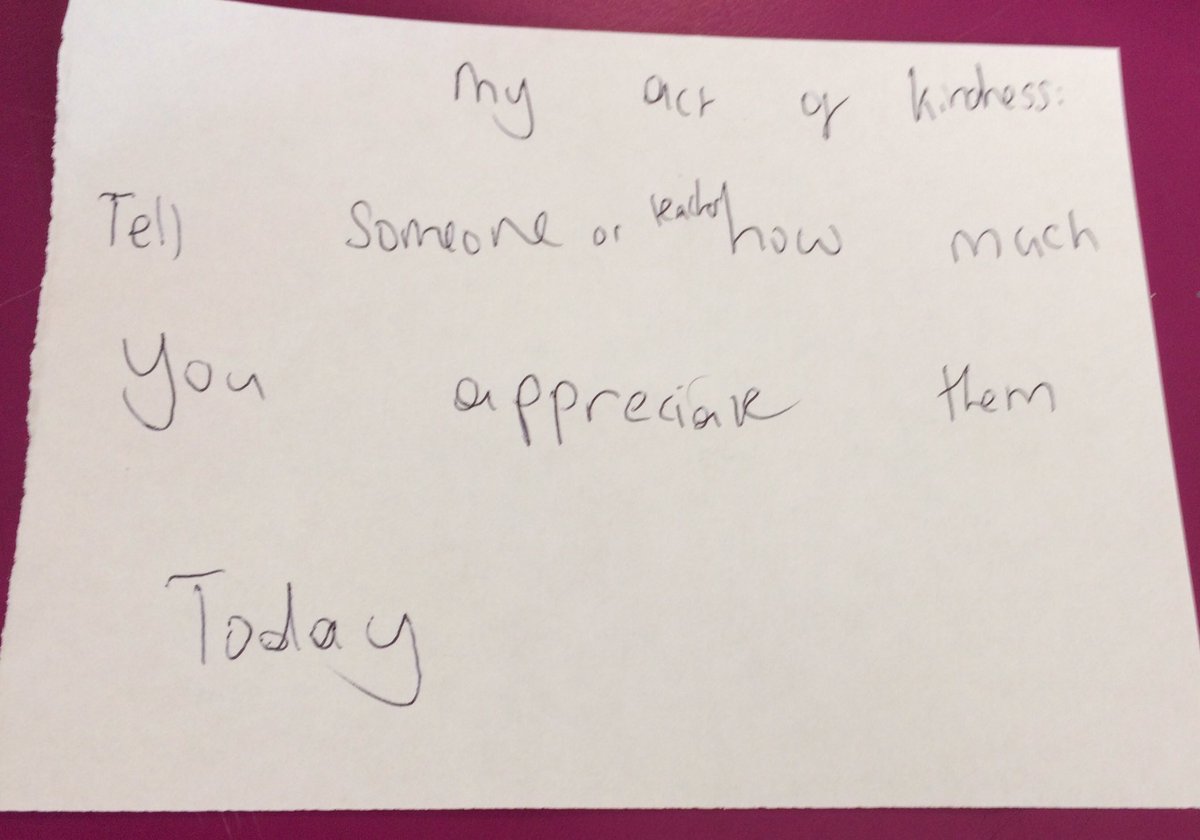 My act of kindness:
Tell someone or teacher how much
you appreciate them
Today